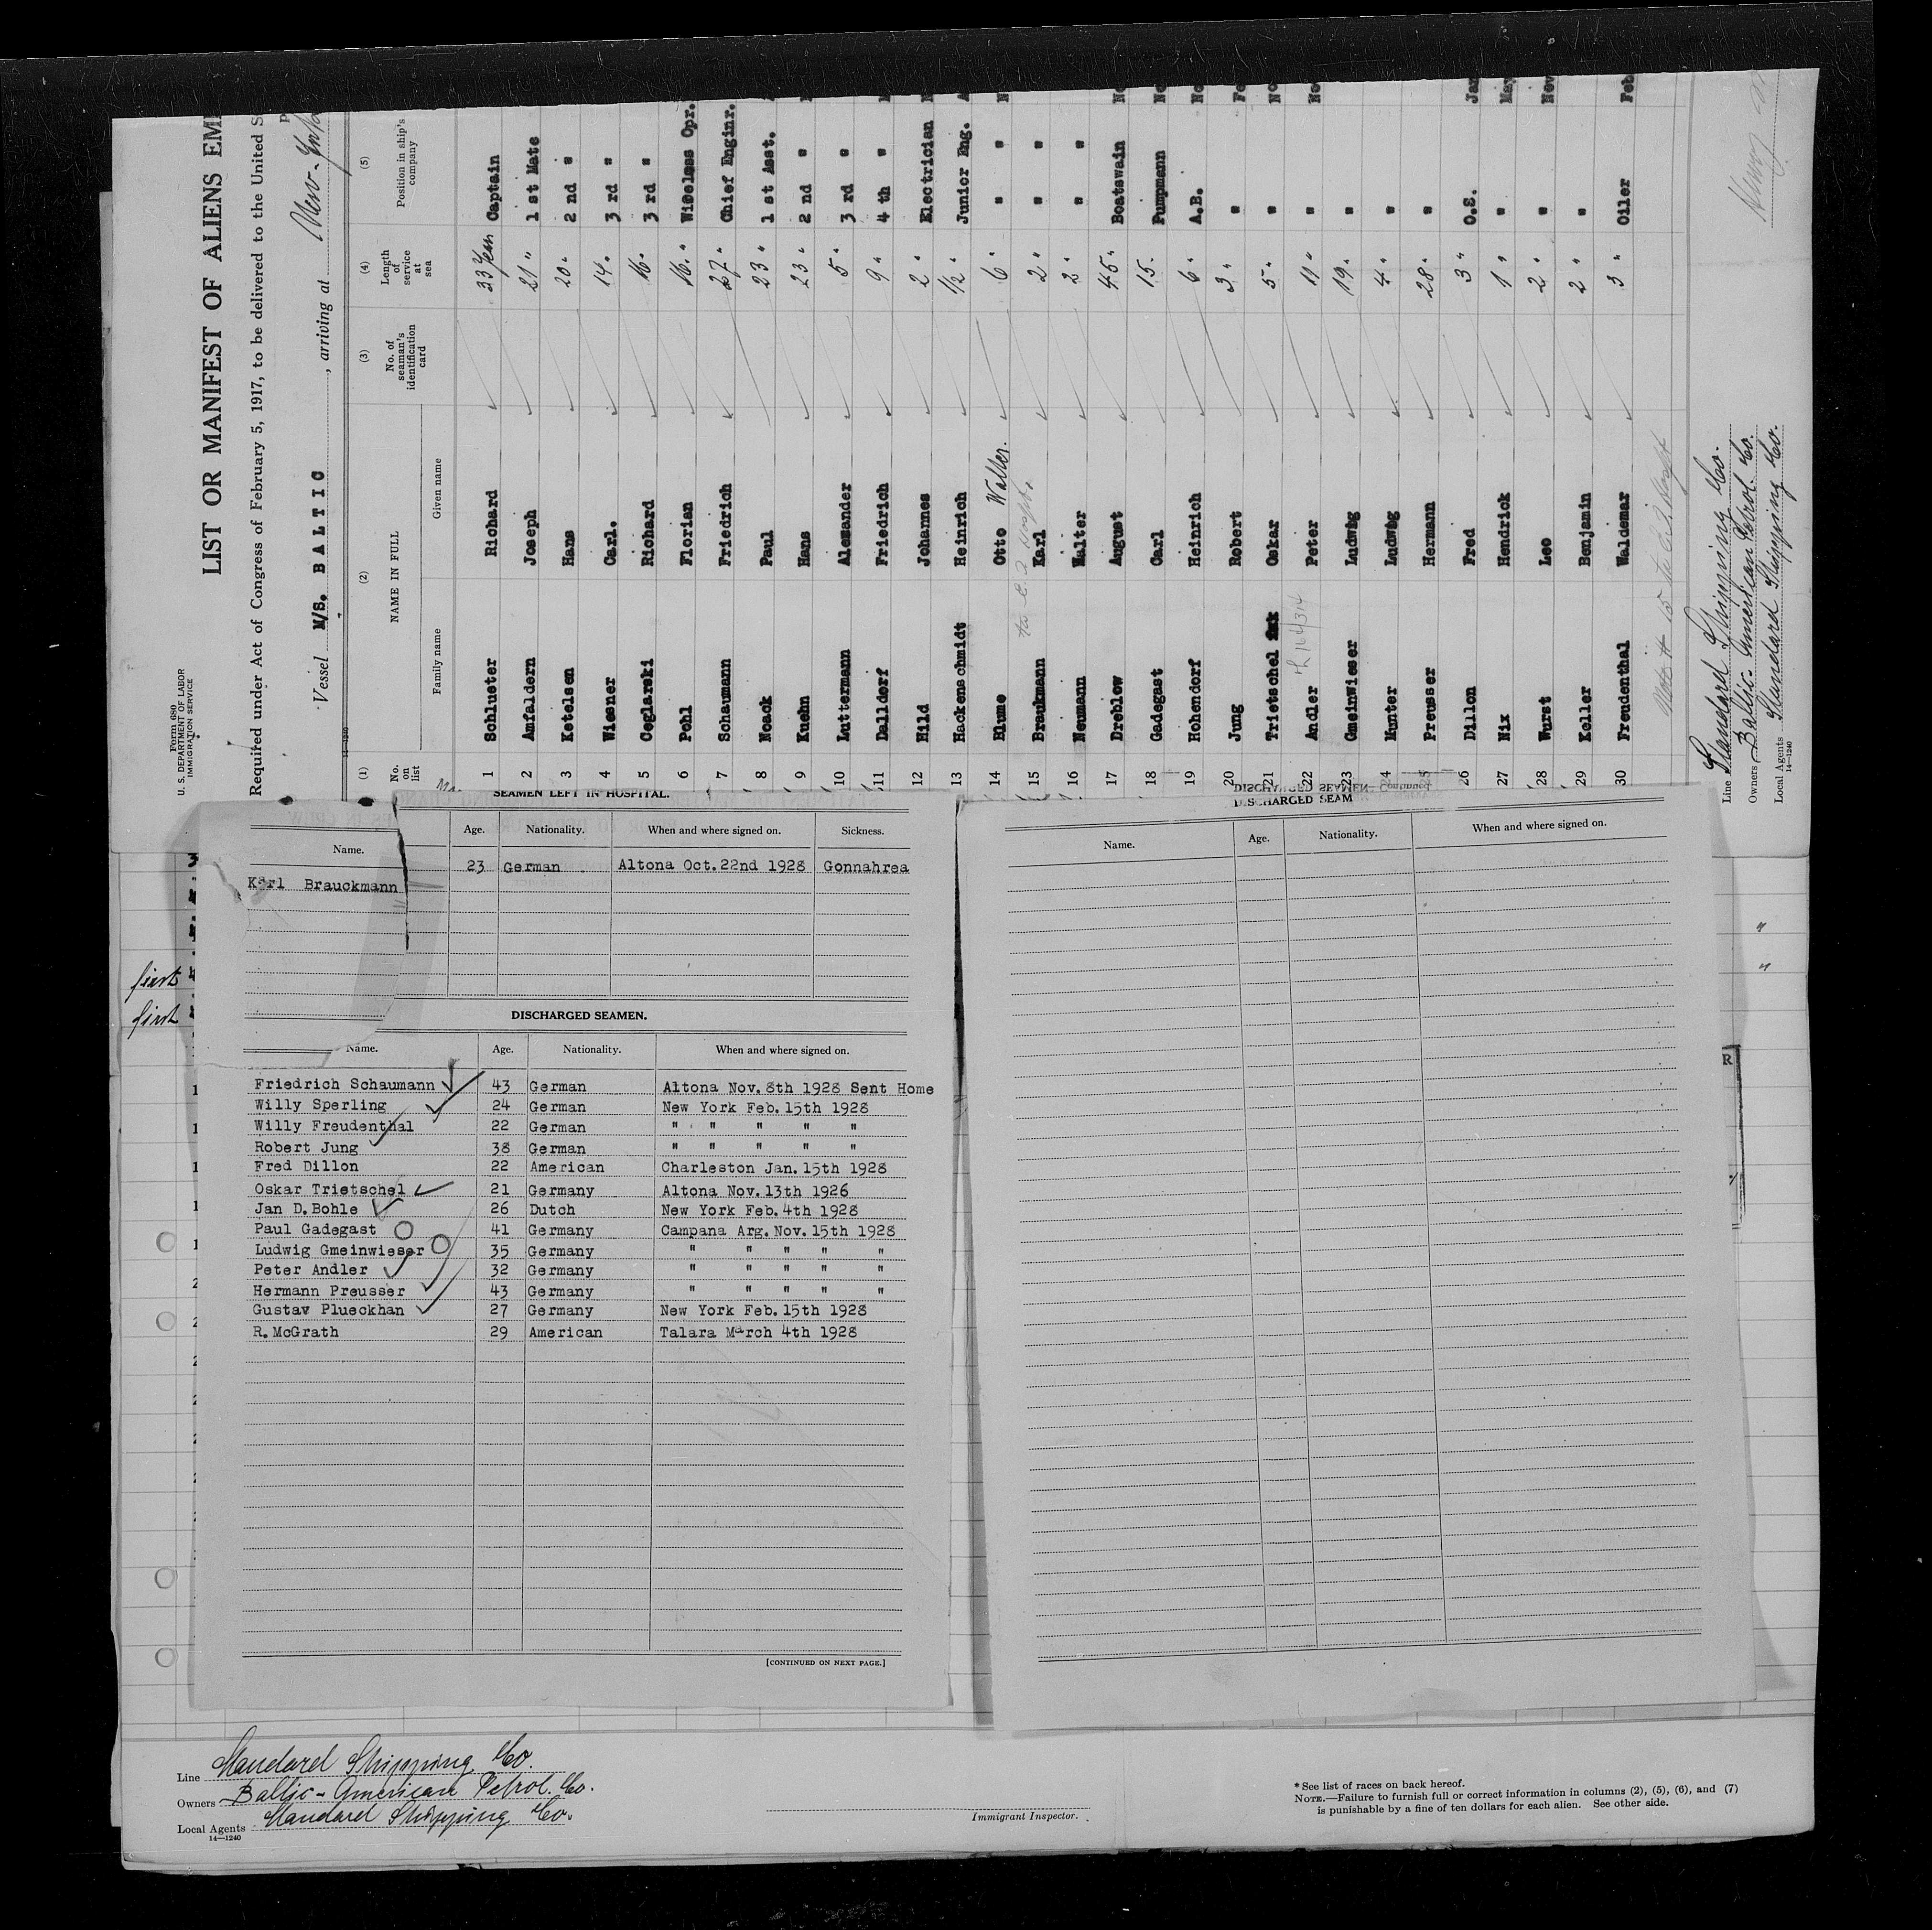 Form 680
U. S. DEPARTMENT OF LABOR
IMMIGRATION SERVICE
LIST OR MANIFEST OF ALIENS
Required under Act of Congress of February 5, 1917, to be delivered to the United
Vessel M/S. BALTIC, arriving at New-York
(1) (2) (3) (4) (5)
No. on list NAME IN FULL No. of seaman's identification card Length of service at sea Position in ship's company
Family name Given name
1 Schlueter Richard 33 Captain
2 Amfaldern Joseph 21 " 1 st Mate
3 Ketelsen Hans 20 " 2 nd "
4 Wiesner Carl. 14 " 3 rd "
5 Ceglarski Richard 16 " 3 rd "
6 Pohl Florian 16 " Wieelsss Opr.
7 Schaumann Friedrich 27 " Chief Enginr.
8 Noack Paul 23 " 1 st Asst.
9 Kuehn Hans 23 " 2 nd "
10 Luttermann Alemander 5 " 3 rd "
11 Dalldorf Friedrich 9 " 4 th "
12 Hild Johannes 2 " Electrician
13 Hackenschmidt Heinrich 1/2 " Junior Eng.
14 Blume Otto Walter. 6 " " "
15 Braukmann Karl 2 " " "
16 Neumann Walter 2 " " "
17 Dreblow August 45 " Boatswain
18 Gadegast Carl 15. Pumpmann
19 Hohendorf Heinrich 6 " A.B.
20 Jung Robert 3 " "
21 Trietschel Oskar 5 " "
22 Andler Peter 11 " "
23 Gmeinwieser Ludwig 19 " "
24 Munter Ludwig 4 " "
25 Preusser Hermann 28 " "
26 Dillon Fred 3 " O.S.
27 Nix Hendrick 1 " "
28 Wurst Leo 2 " "
29 Keller Benjamin 2 " "
30 Freudenthal Waldemar 3 " Oiler
Line Standard Shipping Co.
Owners Baltic-American Petrol. Co.
Local Agents Standard Shipping Co.
14—1240
SEAMEN LEFT IN HOSPITAL.
Name. Age. Nationality. When and where signed on. Sickness.
Karl Brauckmann 23 German Altona Oct.22nd 1928 Gonnahrea
DISCHARGED SEAMEN.
Name. Age. Nationality. When and where signed on.
Friedrich Schaumann 43 German Altona Nov.8th 1928 Sent Home
Willy Sperling 24 German New York Feb.15th 1928
Willy Freudenthal 22 German " " " " "
Robert Jung 38 German " " " " "
Fred Dillon 22 American Charleston Jan.15th 1928
Oskar Trietschel 21 Germany Altona Nov.13th 1926
Jan D.Bohle 26 Dutch New York Feb.4th 1928
Paul Gadegast 41 Germany Campana Arg.Nov.15th 1928
Ludwig Gmeinwieser 35 Germany " " " " "
Peter Andler 32 Germany " " " " "
Hermann Preusser 43 Germany " " " " "
Gustav Plueckhan 27 Germany New York Feb.15th 1928
R.McGrath 29 American Talara March 4th 1928
[CONTINUED ON NEXT PAGE.]
DISCHARGED SEAM
Name. Age. Nationality. When and where signed on.
first
first
Line Standard Shipping Co.
Owners Baltic-American Petrol. Co.
Local Agents Standard Shipping Co.
14—1240
Immigrant Inspector.
* See list of races on back hereof.
NOTE.—Failure to furnish full or correct information in columns (2), (5), (6), and (7)
is punishable by a fine of ten dollars for each alien. See other side.